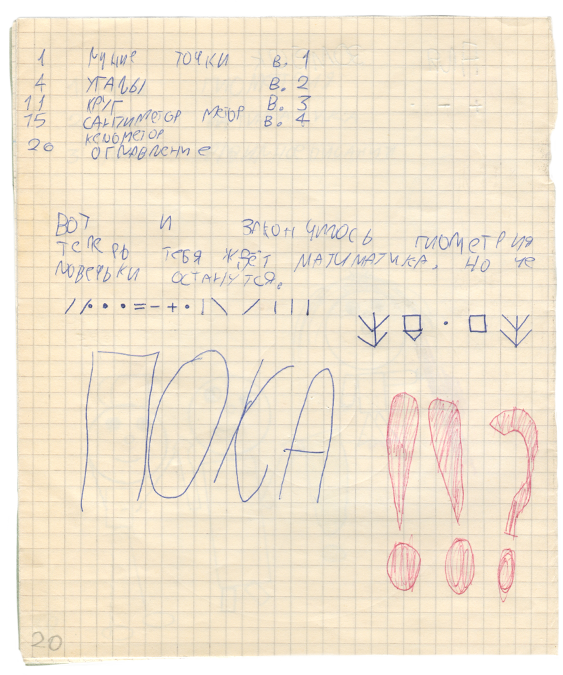 1 лучие точки в. 1
4 угалы в. 2
11 круг в. 3
15 сантиметор метор в. 4
километор
20 оглавление
вот и закончилось гиометрия
теперь тебя ждёт матиматика. но че
ловечьки останутся.
/ / • • • = − + • | \ / | | |
ПОКА
!!?
20